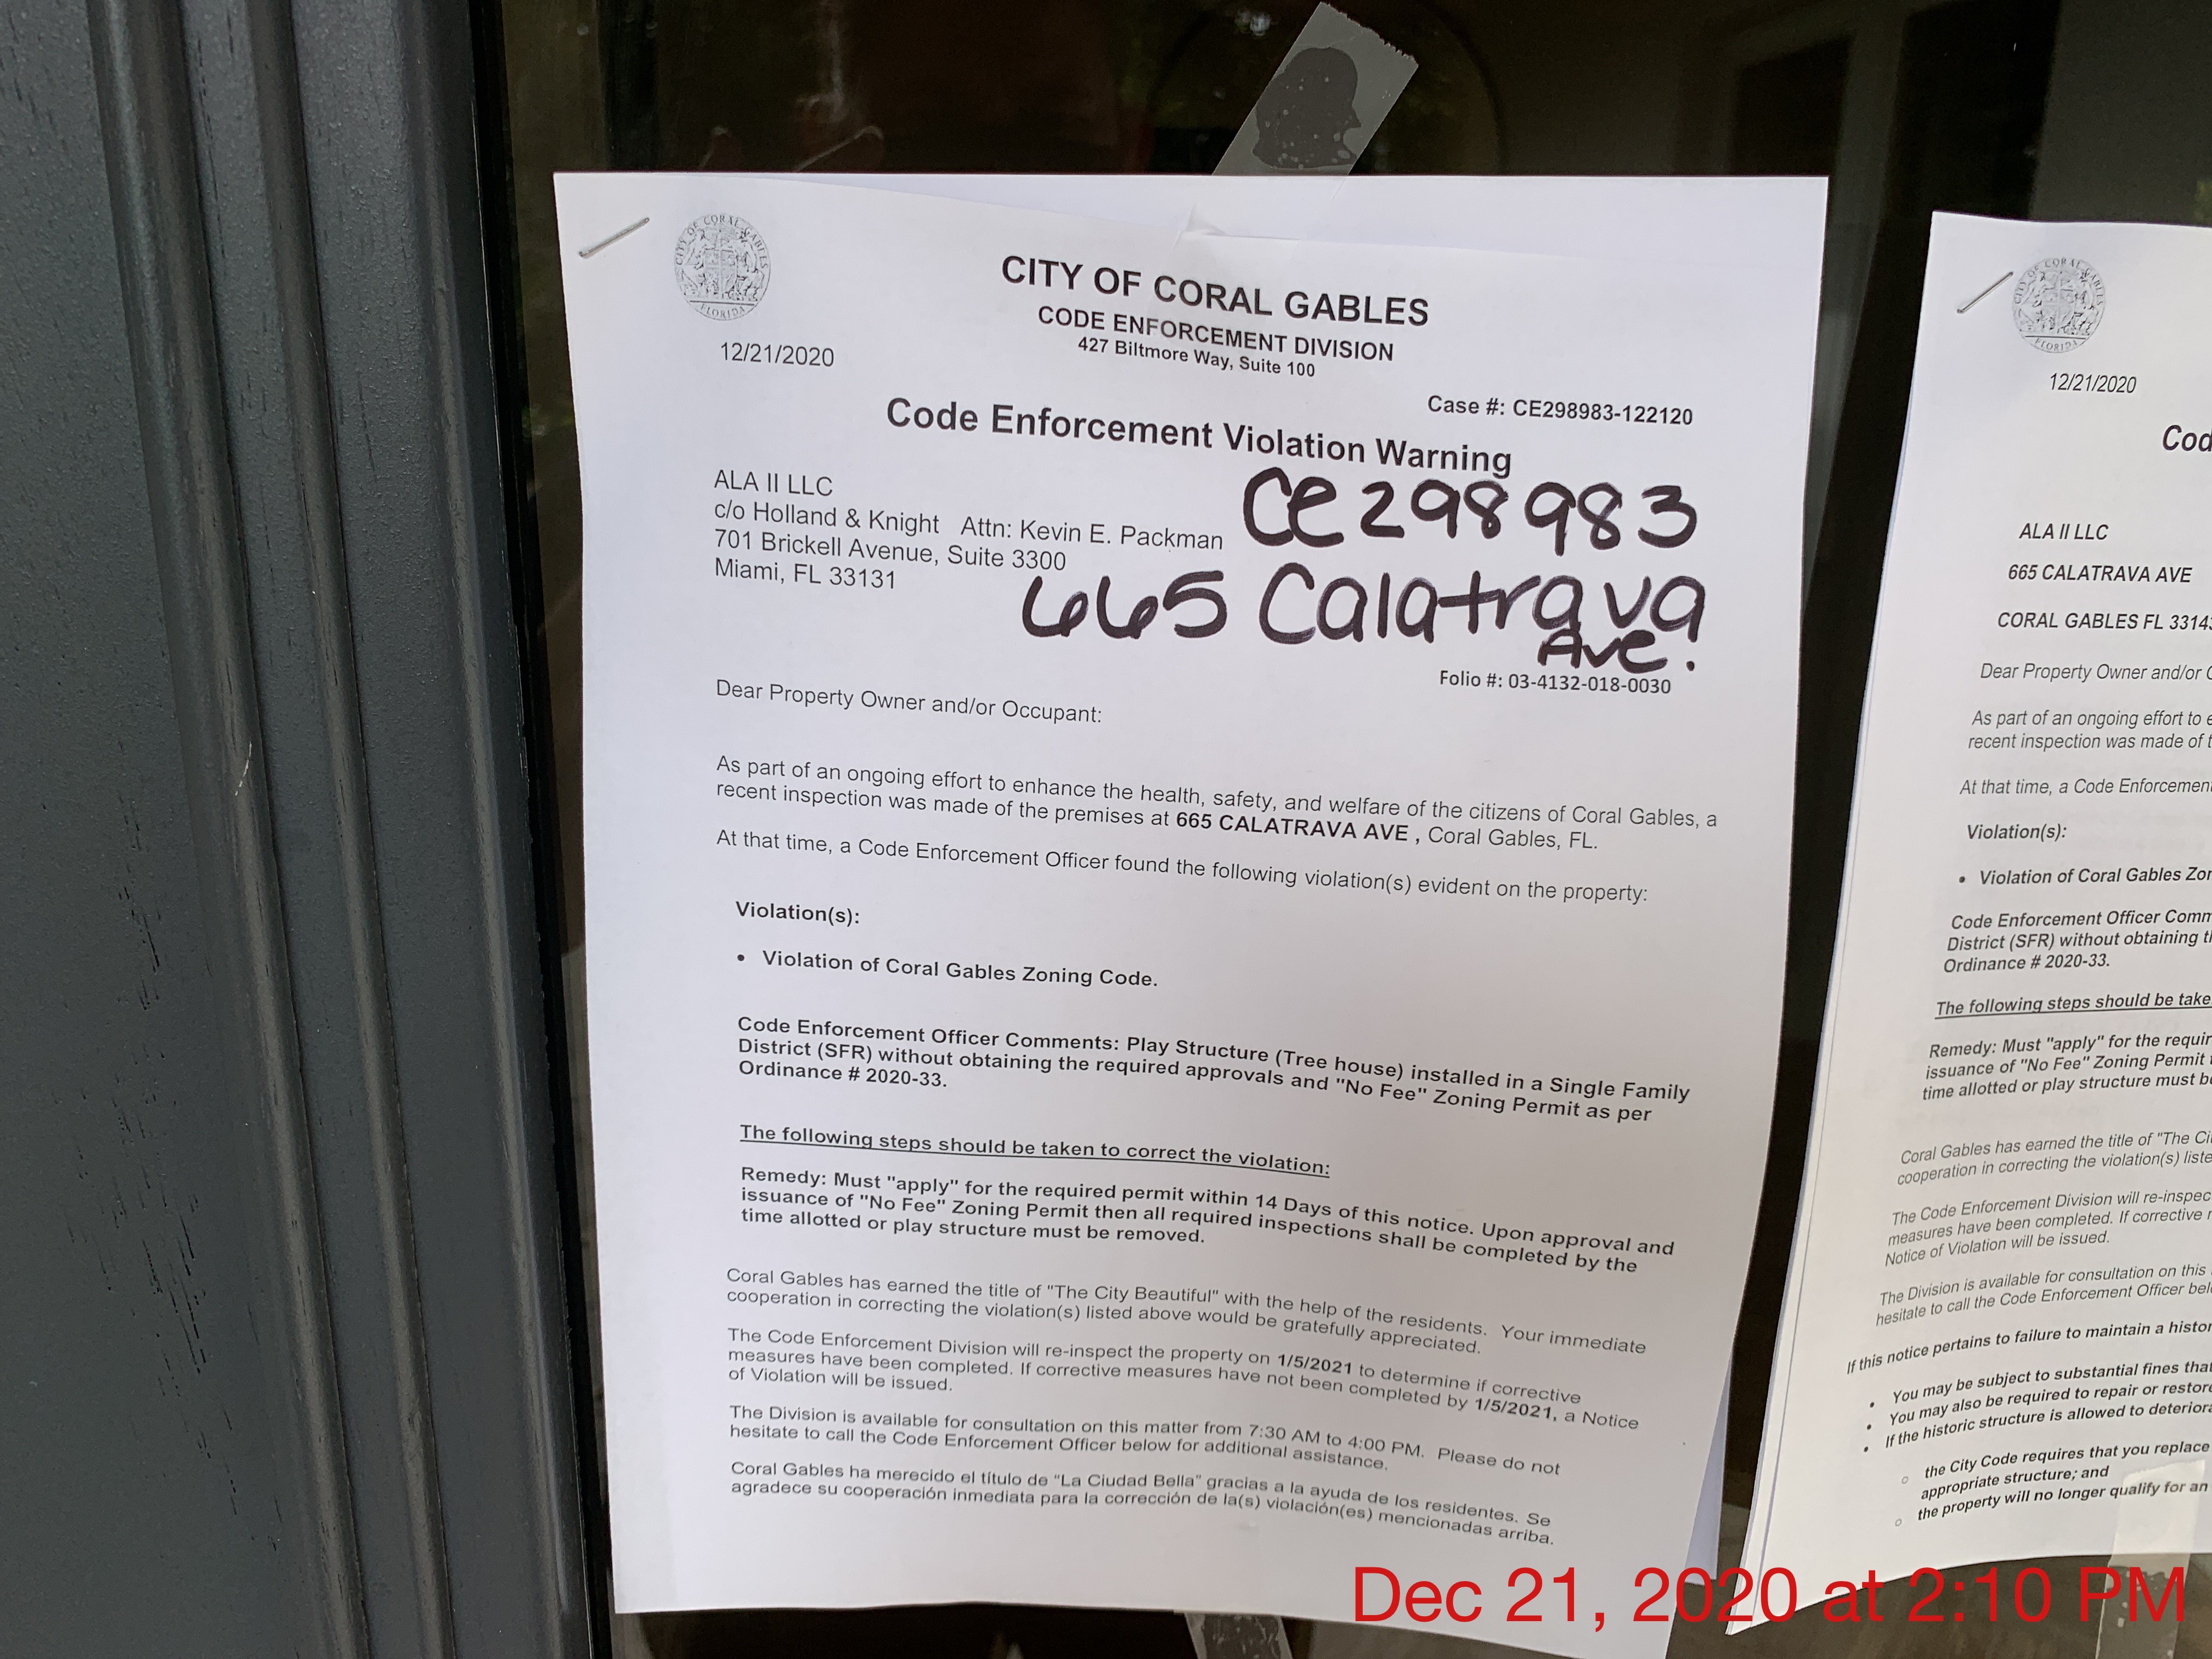 CITY OF CORAL GABLES
FLORIDA
CITY OF CORAL GABLES
CODE ENFORCEMENT DIVISION
427 Biltmore Way, Suite 100
12/21/2020
Case #: CE298983-122120
Code Enforcement Violation Warning
ALA II LLC
c/o Holland & Knight Attn: Kevin E. Packman
701 Brickell Avenue, Suite 3300
Miami, FL 33131
CE298983
665 Calatrava
Ave.
Folio #: 03-4132-018-0030
Dear Property Owner and/or Occupant:
As part of an ongoing effort to enhance the health, safety, and welfare of the citizens of Coral Gables, a
recent inspection was made of the premises at 665 CALATRAVA AVE , Coral Gables, FL.
At that time, a Code Enforcement Officer found the following violation(s) evident on the property:
Violation(s):
• Violation of Coral Gables Zoning Code.
Code Enforcement Officer Comments: Play Structure (Tree house) installed in a Single Family
District (SFR) without obtaining the required approvals and "No Fee" Zoning Permit as per
Ordinance # 2020-33.
The following steps should be taken to correct the violation:
Remedy: Must "apply" for the required permit within 14 Days of this notice. Upon approval and
issuance of "No Fee" Zoning Permit then all required inspections shall be completed by the
time allotted or play structure must be removed.
Coral Gables has earned the title of "The City Beautiful" with the help of the residents. Your immediate
cooperation in correcting the violation(s) listed above would be gratefully appreciated.
The Code Enforcement Division will re-inspect the property on 1/5/2021 to determine if corrective
measures have been completed. If corrective measures have not been completed by 1/5/2021, a Notice
of Violation will be issued.
The Division is available for consultation on this matter from 7:30 AM to 4:00 PM. Please do not
hesitate to call the Code Enforcement Officer below for additional assistance.
Coral Gables ha merecido el título de "La Ciudad Bella" gracias a la ayuda de los residentes. Se
agradece su cooperación inmediata para la corrección de la(s) violación(es) mencionadas arriba.
CITY OF CORAL GABLES
FLORIDA
12/21/2020
Cod
ALA II LLC
665 CALATRAVA AVE
CORAL GABLES FL 33143
Dear Property Owner and/or
As part of an ongoing effort to
recent inspection was made of
At that time, a Code Enforcement
Violation(s):
• Violation of Coral Gables Zon
Code Enforcement Officer Comm
District (SFR) without obtaining
Ordinance # 2020-33.
The following steps should be take
Remedy: Must "apply" for the requir
issuance of "No Fee" Zoning Permit
time allotted or play structure must
Coral Gables has earned the title of "The
cooperation in correcting the violation(s) liste
The Code Enforcement Division will re-inspec
measures have been completed. If corrective
Notice of Violation will be issued.
The Division is available for consultation on this
hesitate to call the Code Enforcement Officer
If this notice pertains to failure to maintain a histor
• You may be subject to substantial fines
• You may also be required to repair or restor
• If the historic structure is allowed to deteriora
○ the City Code requires that you replace
appropriate structure; and
○ the property will no longer qualify for an
Dec 21, 2020 at 2:10 PM